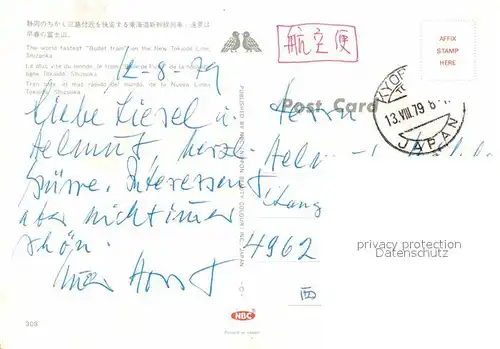 静岡のちかく三島付近を快走する東海道新幹線列車、遠景は
早春の富士山。
The world fastest "Bullet train" on the New Tokaido Line,
Shizuoka
Le plus vite du monde, le train de la nouvelle
ligne Tokaido, Shizuoka
Tren bala, el mas rápido del mundo, de la Nueva Linea
Tokaido, Shizuoka
12-8-79
Liebe Liesel u.
Helmut, herzl.
Grüsse. Interessant,
aber nicht immer
schön.
Euer Horst
308
航空便
AFFIX
STAMP
HERE
Post Card
KYO
13.VIII.79
JAPAN
Herrn
4962
西
PUBLISHED BY NBC NIPPON BEAUTY COLOUR INC. JAPAN -C-
privacy protection
Datenschutz
NBC
Printed in Japan